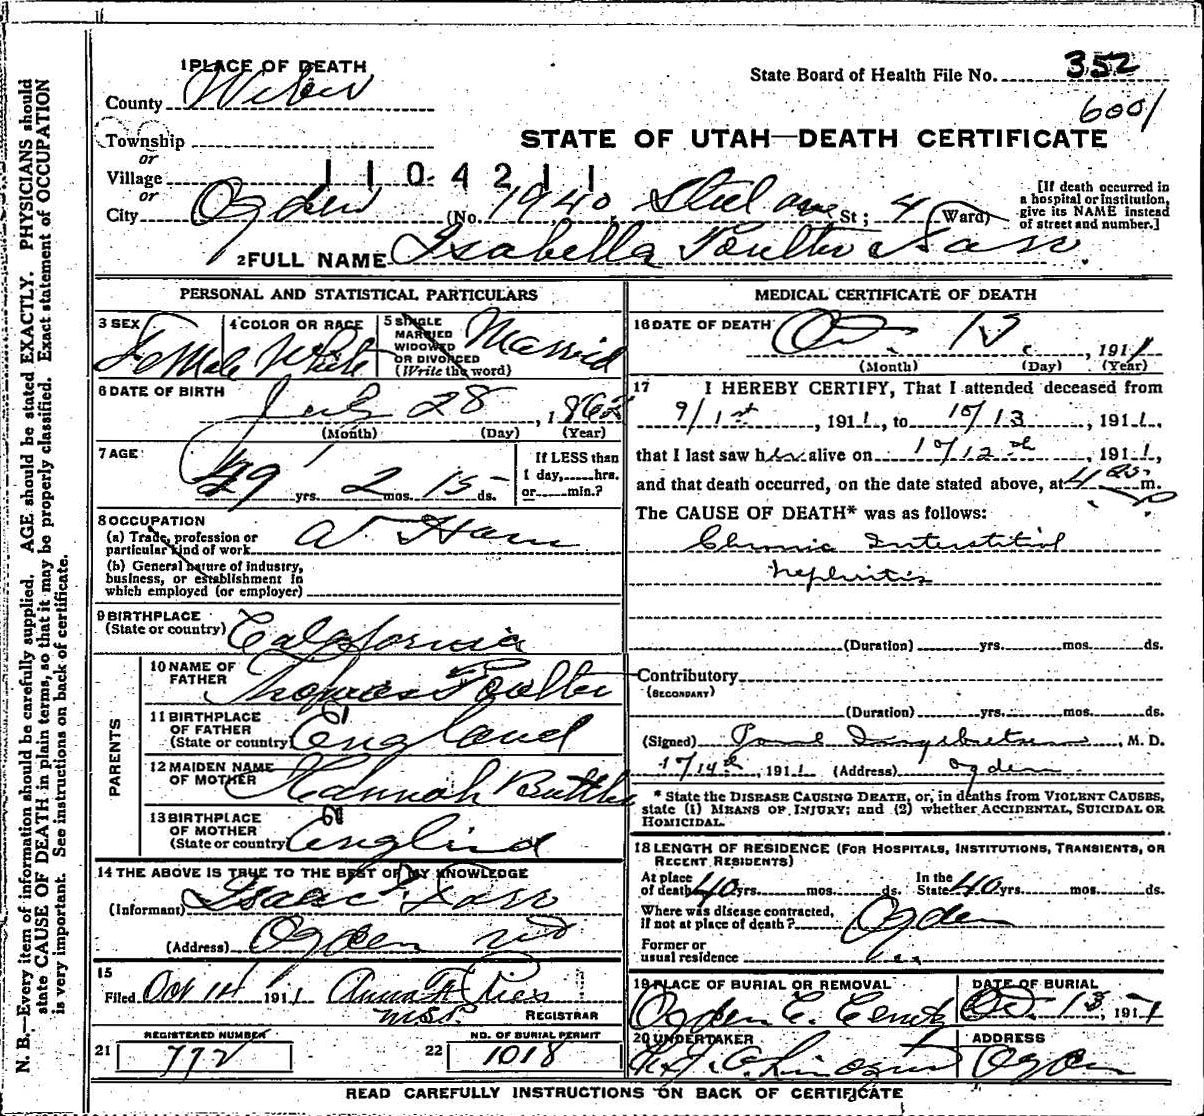 N. B.—Every item of information should be carefully supplied. AGE should be stated EXACTLY. PHYSICIANS should
state CAUSE OF DEATH in plain terms, so that it may be properly classified. Exact statement of OCCUPATION
is very important. See instructions on back of certificate.
1 PLACE OF DEATH
State Board of Health File No. 352
County Weber
6001
Township
STATE OF UTAH—DEATH CERTIFICATE
or
Village 1104211
or
City Ogden (No. 1940, St; 4 Ward)
[If death occurred in
a hospital or institution,
give its NAME instead
of street and number.]
2 FULL NAME Isabella Poulter
PERSONAL AND STATISTICAL PARTICULARS
3 SEX Female
4 COLOR OR RACE White
5 SINGLE
MARRIED
WIDOWED
OR DIVORCED
(Write the word) Married
6 DATE OF BIRTH
July 28, 1862
(Month) (Day) (Year)
7 AGE
49 yrs. 2 mos. 15 ds.
If LESS than
1 day, hrs.
or min.?
8 OCCUPATION
(a) Trade, profession or
particular kind of work
(b) General nature of industry,
business, or establishment in
which employed (or employer)
9 BIRTHPLACE
(State or country) California
PARENTS
10 NAME OF
FATHER Thomas Poulter
11 BIRTHPLACE
OF FATHER
(State or country) England
12 MAIDEN NAME
OF MOTHER Hannah
13 BIRTHPLACE
OF MOTHER
(State or country) England
14 THE ABOVE IS TRUE TO THE BEST OF MY KNOWLEDGE
(Informant) Isaac
(Address) Ogden
15
Filed Oct 14 1911 Anna
REGISTRAR
REGISTERED NUMBER
21 772
NO. OF BURIAL PERMIT
22 1018
MEDICAL CERTIFICATE OF DEATH
16 DATE OF DEATH
, 1911
(Month) (Day) (Year)
17 I HEREBY CERTIFY, That I attended deceased from
9/1st, 1911, to 10/13, 1911,
that I last saw her alive on 10/12th, 1911,
and that death occurred, on the date stated above, at m.
The CAUSE OF DEATH* was as follows:
Chronic Interstitial
Nephritis
(Duration) yrs. mos. ds.
Contributory
(SECONDARY)
(Duration) yrs. mos. ds.
(Signed) Paul Ingebretsen, M. D.
10/14th, 1911 (Address) Ogden
* State the DISEASE CAUSING DEATH, or, in deaths from VIOLENT CAUSES,
state (1) MEANS OF INJURY; and (2) whether ACCIDENTAL, SUICIDAL OR
HOMICIDAL.
18 LENGTH OF RESIDENCE (FOR HOSPITALS, INSTITUTIONS, TRANSIENTS, OR
RECENT RESIDENTS)
At place
of death 40 yrs. mos. ds.
In the
State 40 yrs. mos. ds.
Where was disease contracted,
if not at place of death? Ogden
Former or
usual residence
19 PLACE OF BURIAL OR REMOVAL
Ogden C.
DATE OF BURIAL
Oct. 15, 1911
20 UNDERTAKER
ADDRESS
Ogden
READ CAREFULLY INSTRUCTIONS ON BACK OF CERTIFICATE